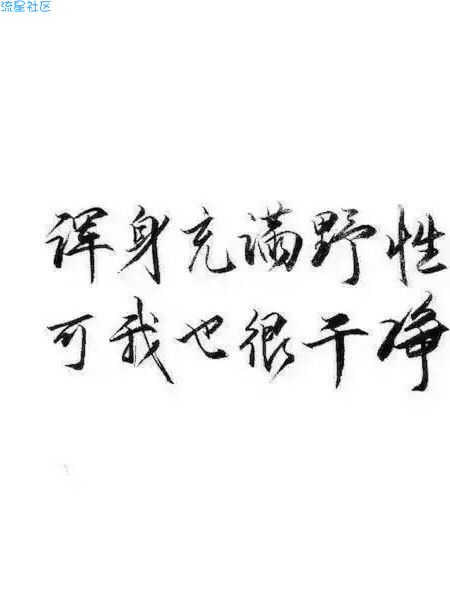 流星社区
浑身充满野性
可我也很干净